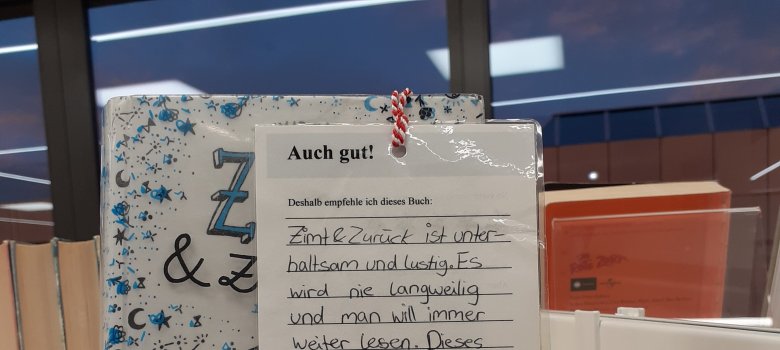 Z
& z
Auch gut!
Deshalb empfehle ich dieses Buch:
Zimt & Zurück ist unter-
haltsam und lustig. Es
wird nie langweilig
und man will immer
weiter lesen. Dieses